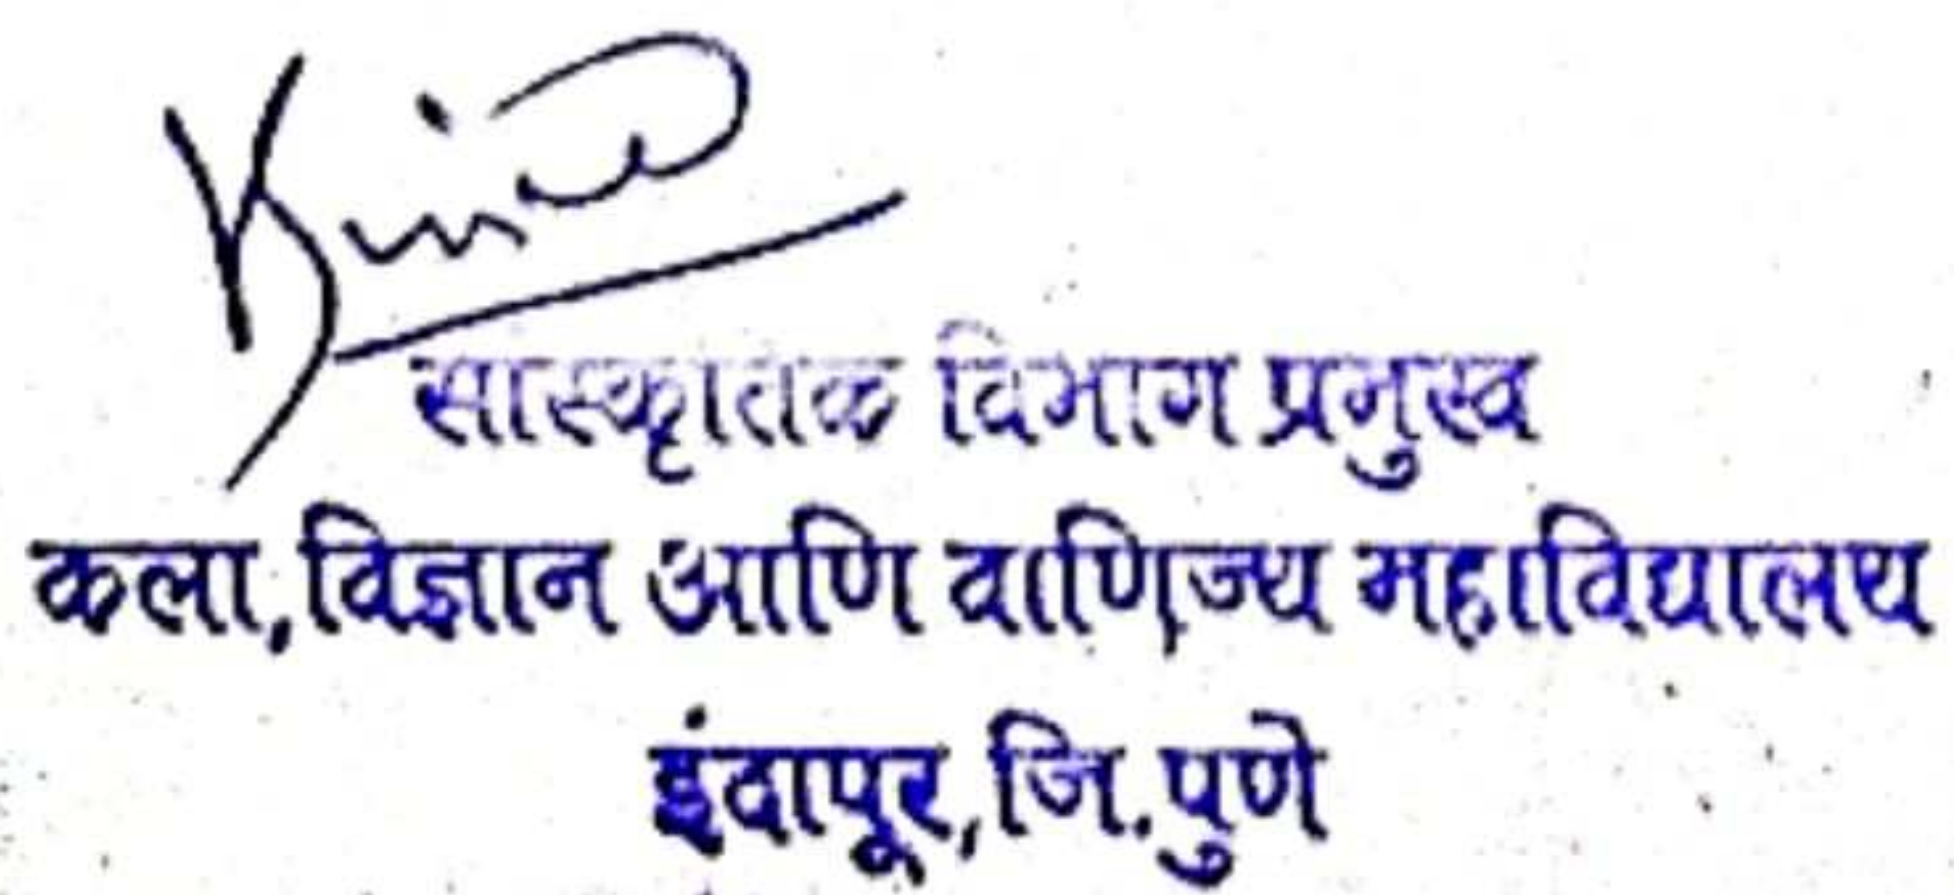 सांस्कृतिक विभाग प्रमुख
कला, विज्ञान आणि वाणिज्य महाविद्यालय
इंदापूर, जि. पुणे